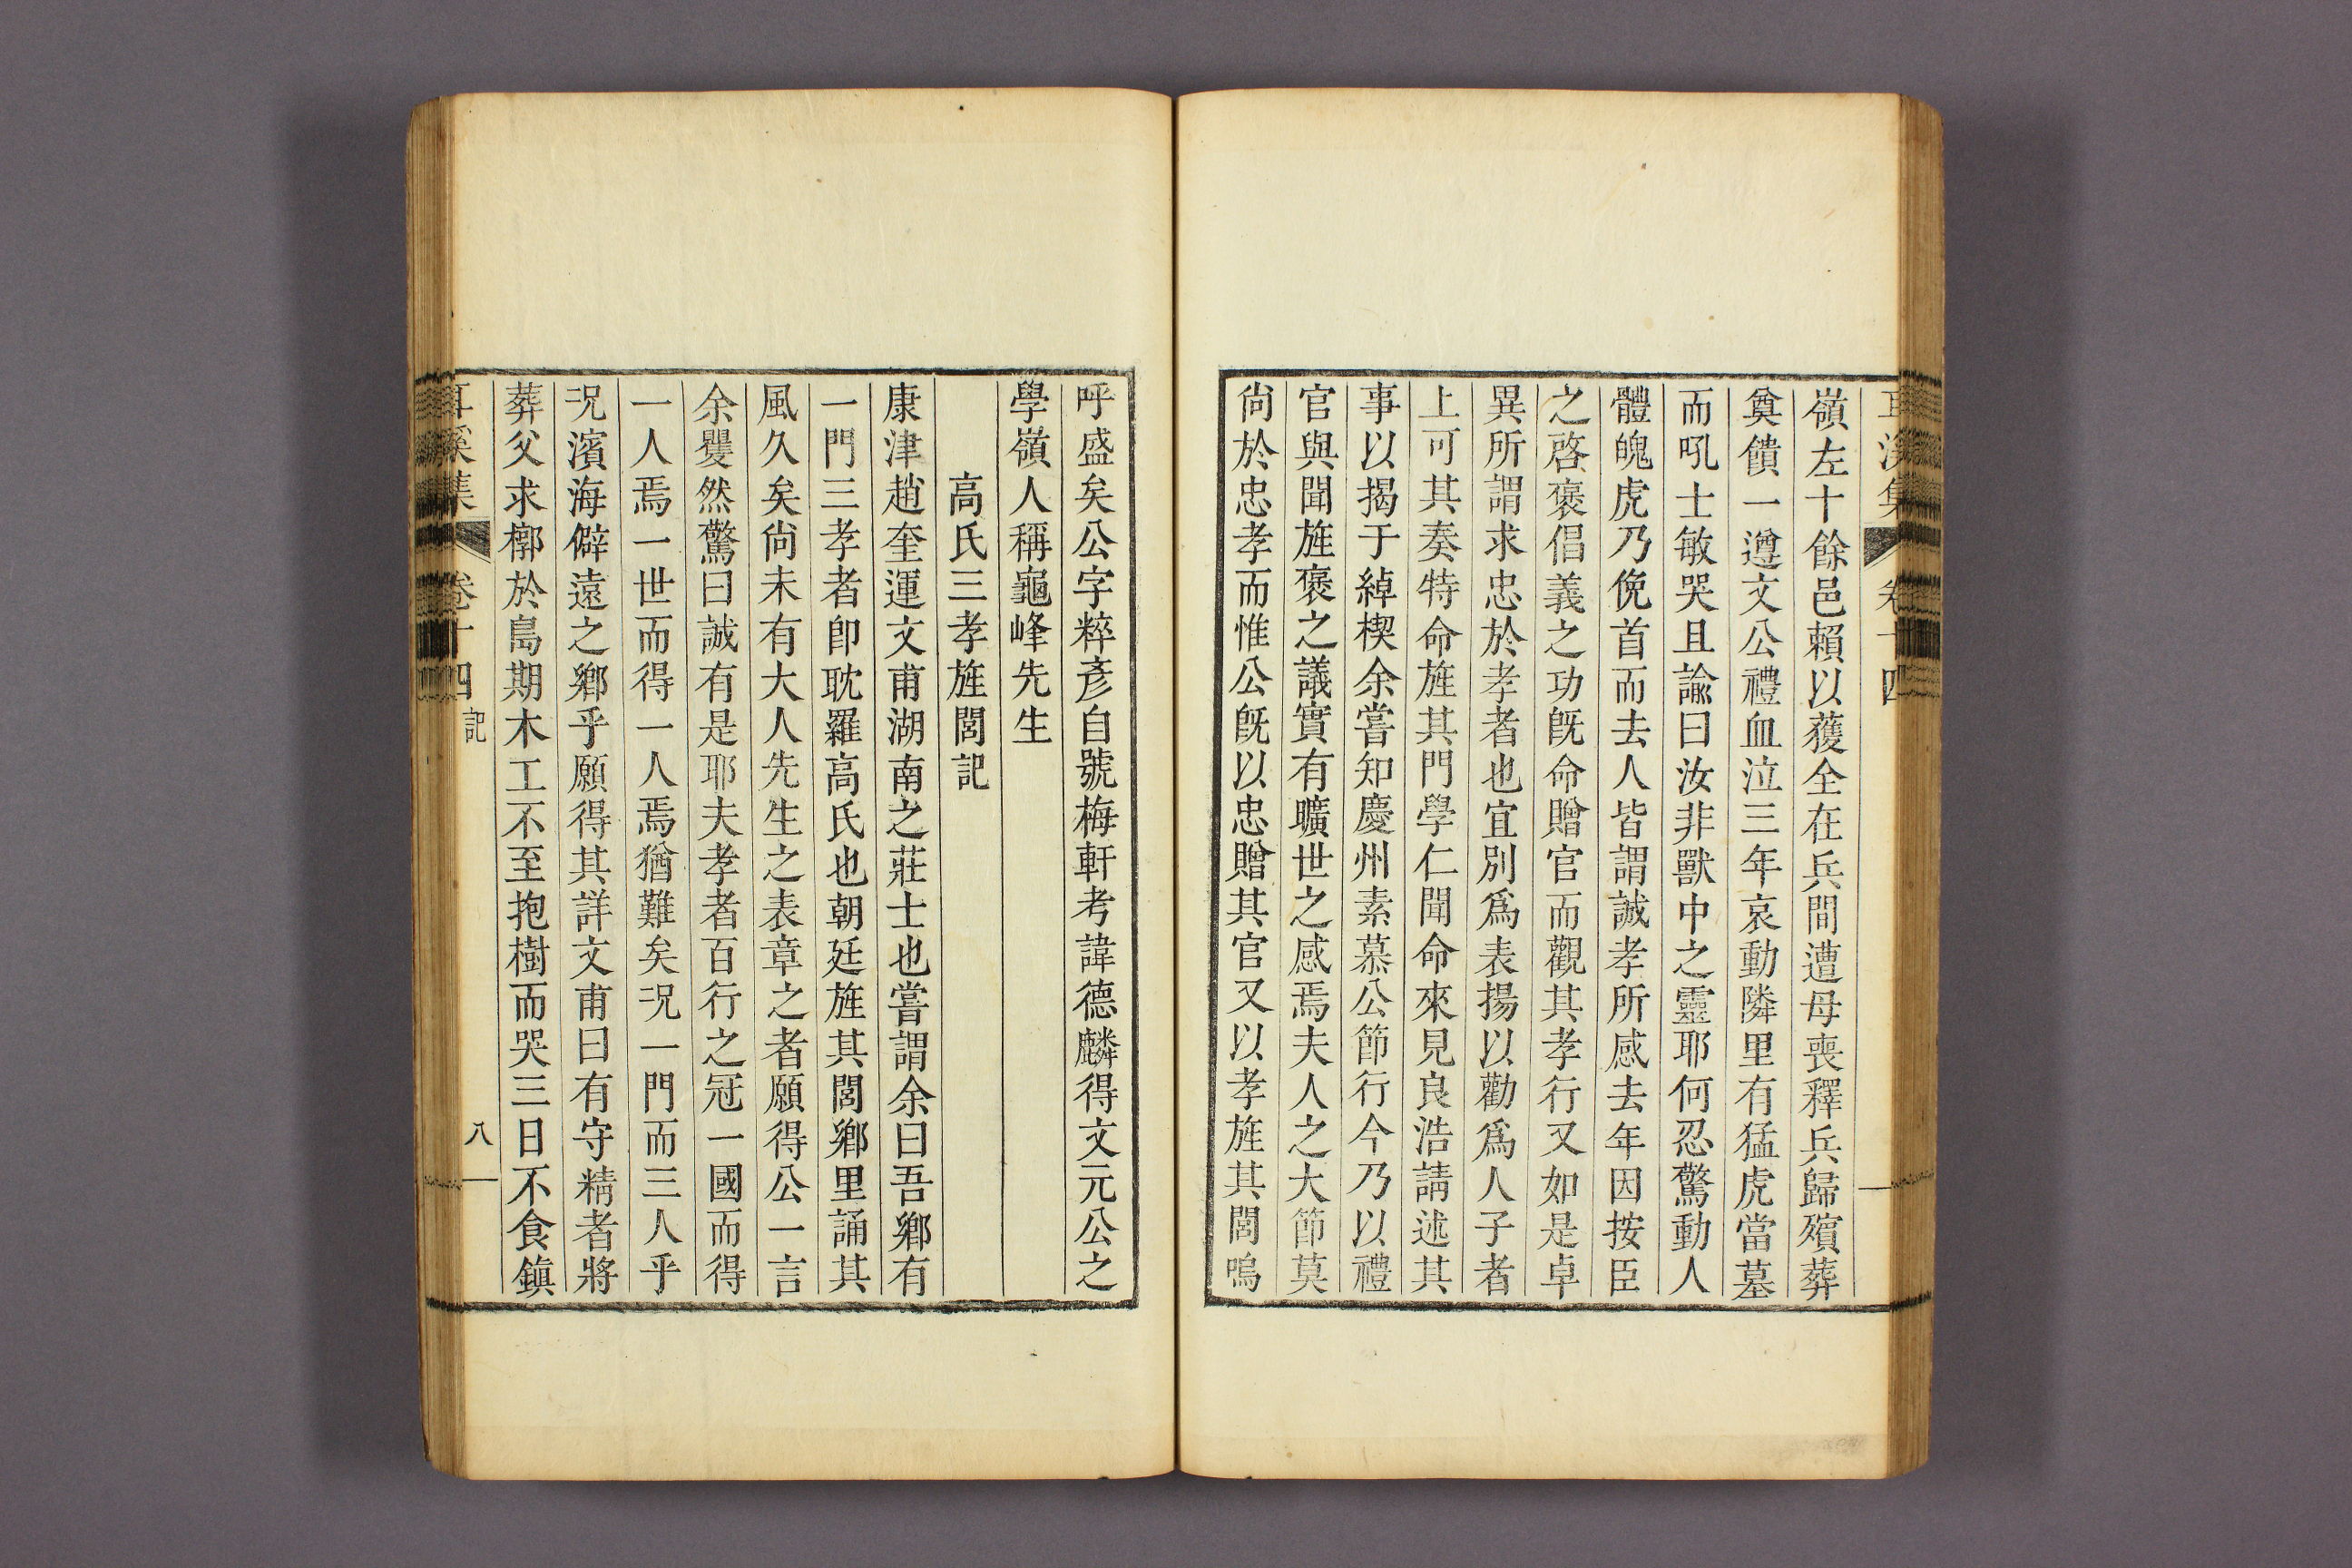 嶺左十餘邑賴以獲全在兵間遭母喪釋兵歸殯葬
奠饋一遵文公禮血泣三年哀動隣里有猛虎當墓
而吼士敏哭且諭曰汝非獸中之靈耶何忍驚動人
體魄虎乃俛首而去人皆謂誠孝所感去年因按臣
之啓褒倡義之功旣命贈官而觀其孝行又如是卓
異所謂求忠於孝者也宜別爲表揚以勸爲人子者
上可其奏特命旌其門學仁聞命來見良浩請述其
事以揭于綽楔余嘗知慶州素慕公節行今乃以禮
官與聞旌褒之議實有曠世之感焉夫人之大節莫
尙於忠孝而惟公旣以忠贈其官又以孝旌其閭嗚
呼盛矣公字粹彥自號梅軒考諱德麟得文元公之
學嶺人稱龜峰先生
高氏三孝旌閭記
康津趙奎運文甫湖南之莊士也嘗謂余曰吾鄕有
一門三孝者卽耽羅高氏也朝廷旌其閭鄕里誦其
風久矣尙未有大人先生之表章之者願得公一言
余矍然驚曰誠有是耶夫孝者百行之冠一國而得
一人焉一世而得一人焉猶難矣况一門而三人乎
况濱海僻遠之鄕乎願得其詳文甫曰有守精者將
葬父求槨於島期木工不至抱樹而哭三日不食鎭
耳溪集 卷十四 記 八